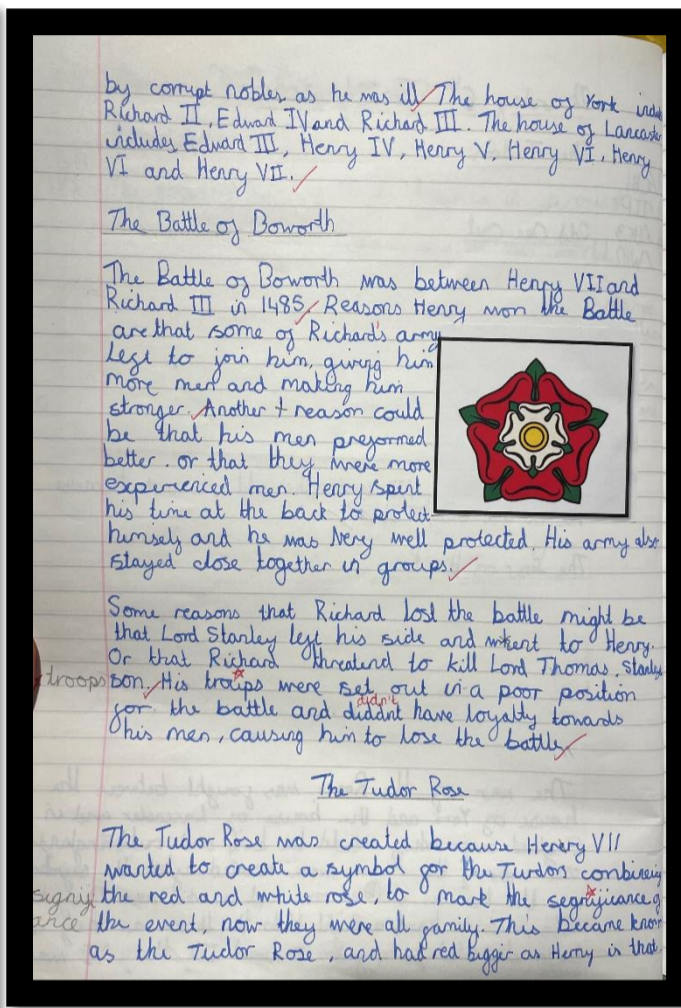 by corrupt nobles, as he was ill. The house of York inclu
Richard II, Edward IV and Richard III. The house of Lancaster
includes Edward III, Henry IV, Henry V, Henry VI, Henry
VI and Henry VII.
The Battle of Boworth
The Battle of Boworth was between Henry VII and
Richard III in 1485. Reasons Henry won the Battle
are that some of Richard's army
left to join him, giving him
more men and making him
stronger. Another reason could
be that his men preformed
better. or that they were more
experienced men. Henry spent
his time at the back to protect
himself and he was very well protected. His army also
stayed close together in groups.
Some reasons that Richard lost the battle might be
that Lord Stanley left his side and whent to Henry.
Or that Richard threatend to kill Lord Thomas, Stanley
troops son. His troips were set out in a poor position
didn't
for the battle and diddnt have loyalty towards
his men, causing him to lose the battle.
The Tudor Rose
The Tudor Rose was created because Henery VII
wanted to create a symbol for the Turdors combineing
signif the red and white rose, to mark the segnificance of
ance the event, now they were all family. This became know
as the Tudor Rose, and had red bigger as Henry is that